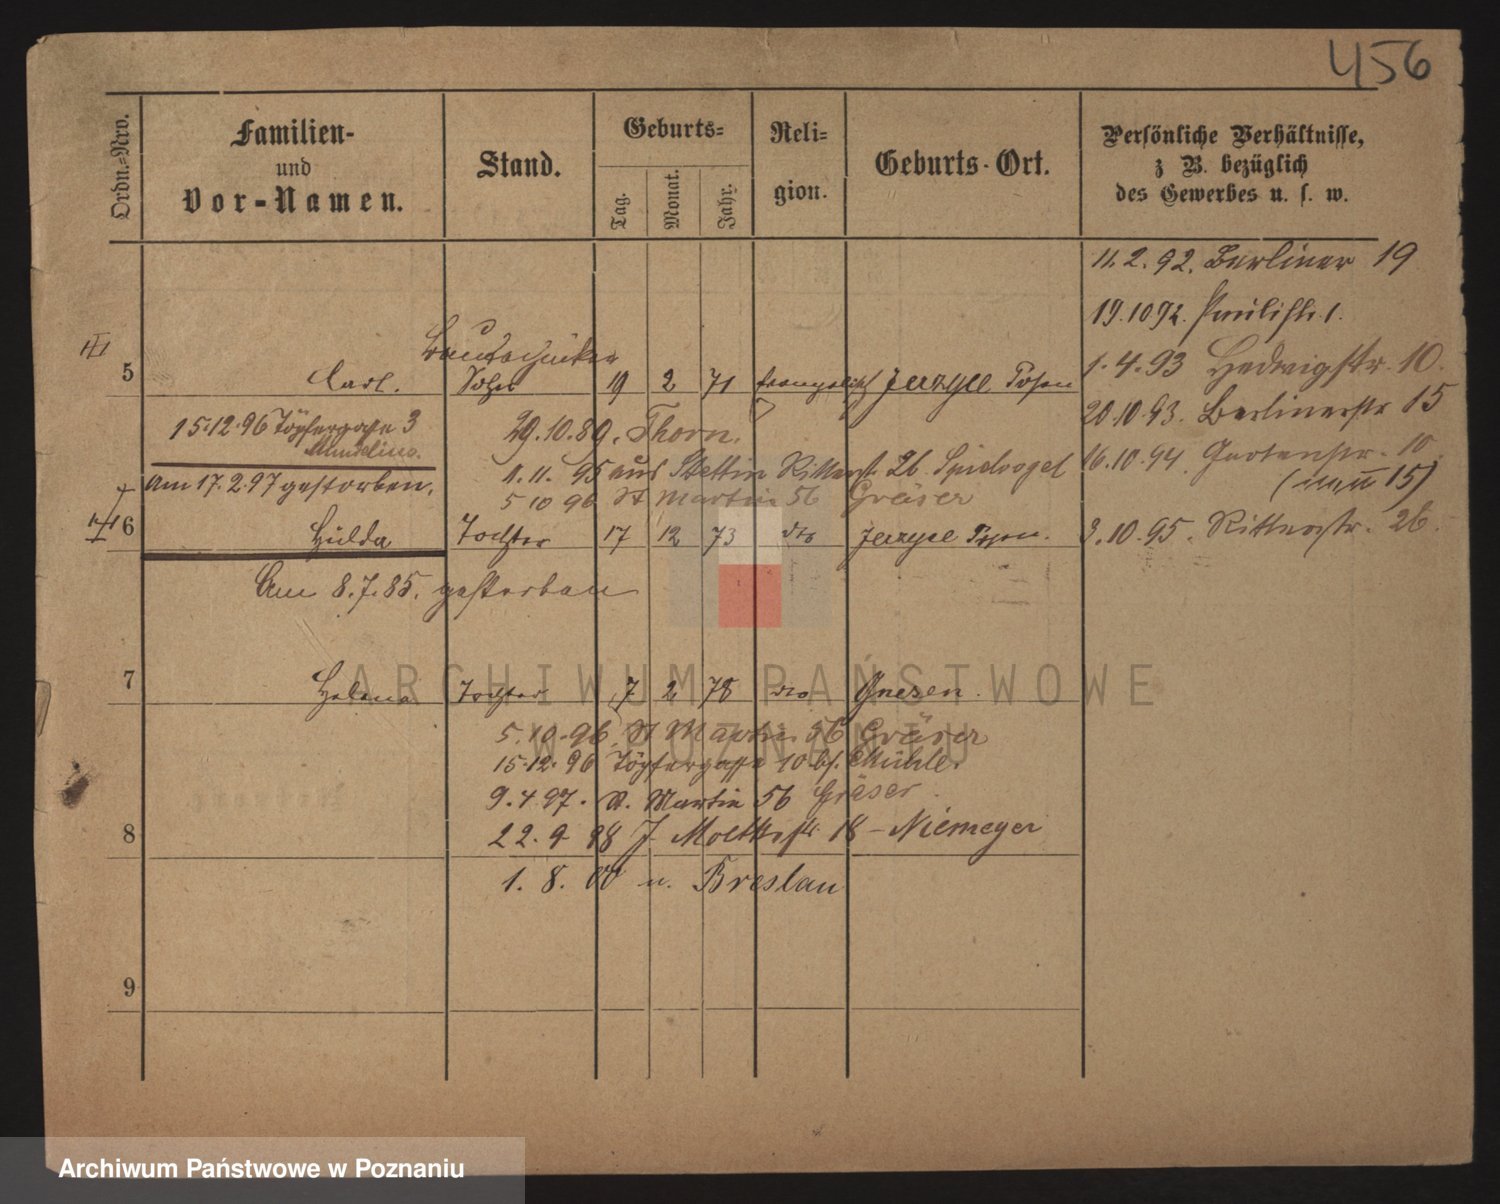 456
Ordn.-Nro.
Familien-
und
Vor-Namen.
Stand.
Geburts-
Tag.
Monat.
Jahr.
Reli-
gion.
Geburts-Ort.
Persönliche Verhältnisse,
z B. bezüglich
des Gewerbes u. s. w.
11.2.92. Berliner 19
19.10.92. Paulistr. 1.
1.4.93 Hedwigstr. 10.
5 Carl. Sohn 19 2 71 evangelisch Jerzyce Posen
20.10.93. Berlinerstr 15
15.12.96 Töpfergasse 3
29.10.89. Thorn.
16.10.94. Gartenstr. 10
1.11.95 aus Stettin Ritterst. 26. Spielvogel
(neu 15)
Am 17.2.97 gestorben.
5 10 96 St Martin 56 Gräser
6 Hulda Tochter 17 12 73 dto Jerzyce Posen.
3.10.95. Ritterstr. 26.
Am 8.7.85. gestorben
7 Helena Tochter 7 2 78 dto Gnesen.
5.10.96 St Martin 56 Gräser
15.12.96 Töpfergasse 10 bf. Mühle.
9.4.97. St. Martin 56 Gräser.
8 22.9 98 J. Moltkestr 18 - Niemeyer
1. 8. 00 n. Breslau
9
ARCHIWUM PAŃSTWOWE
W POZNANIU
Archiwum Państwowe w Poznaniu